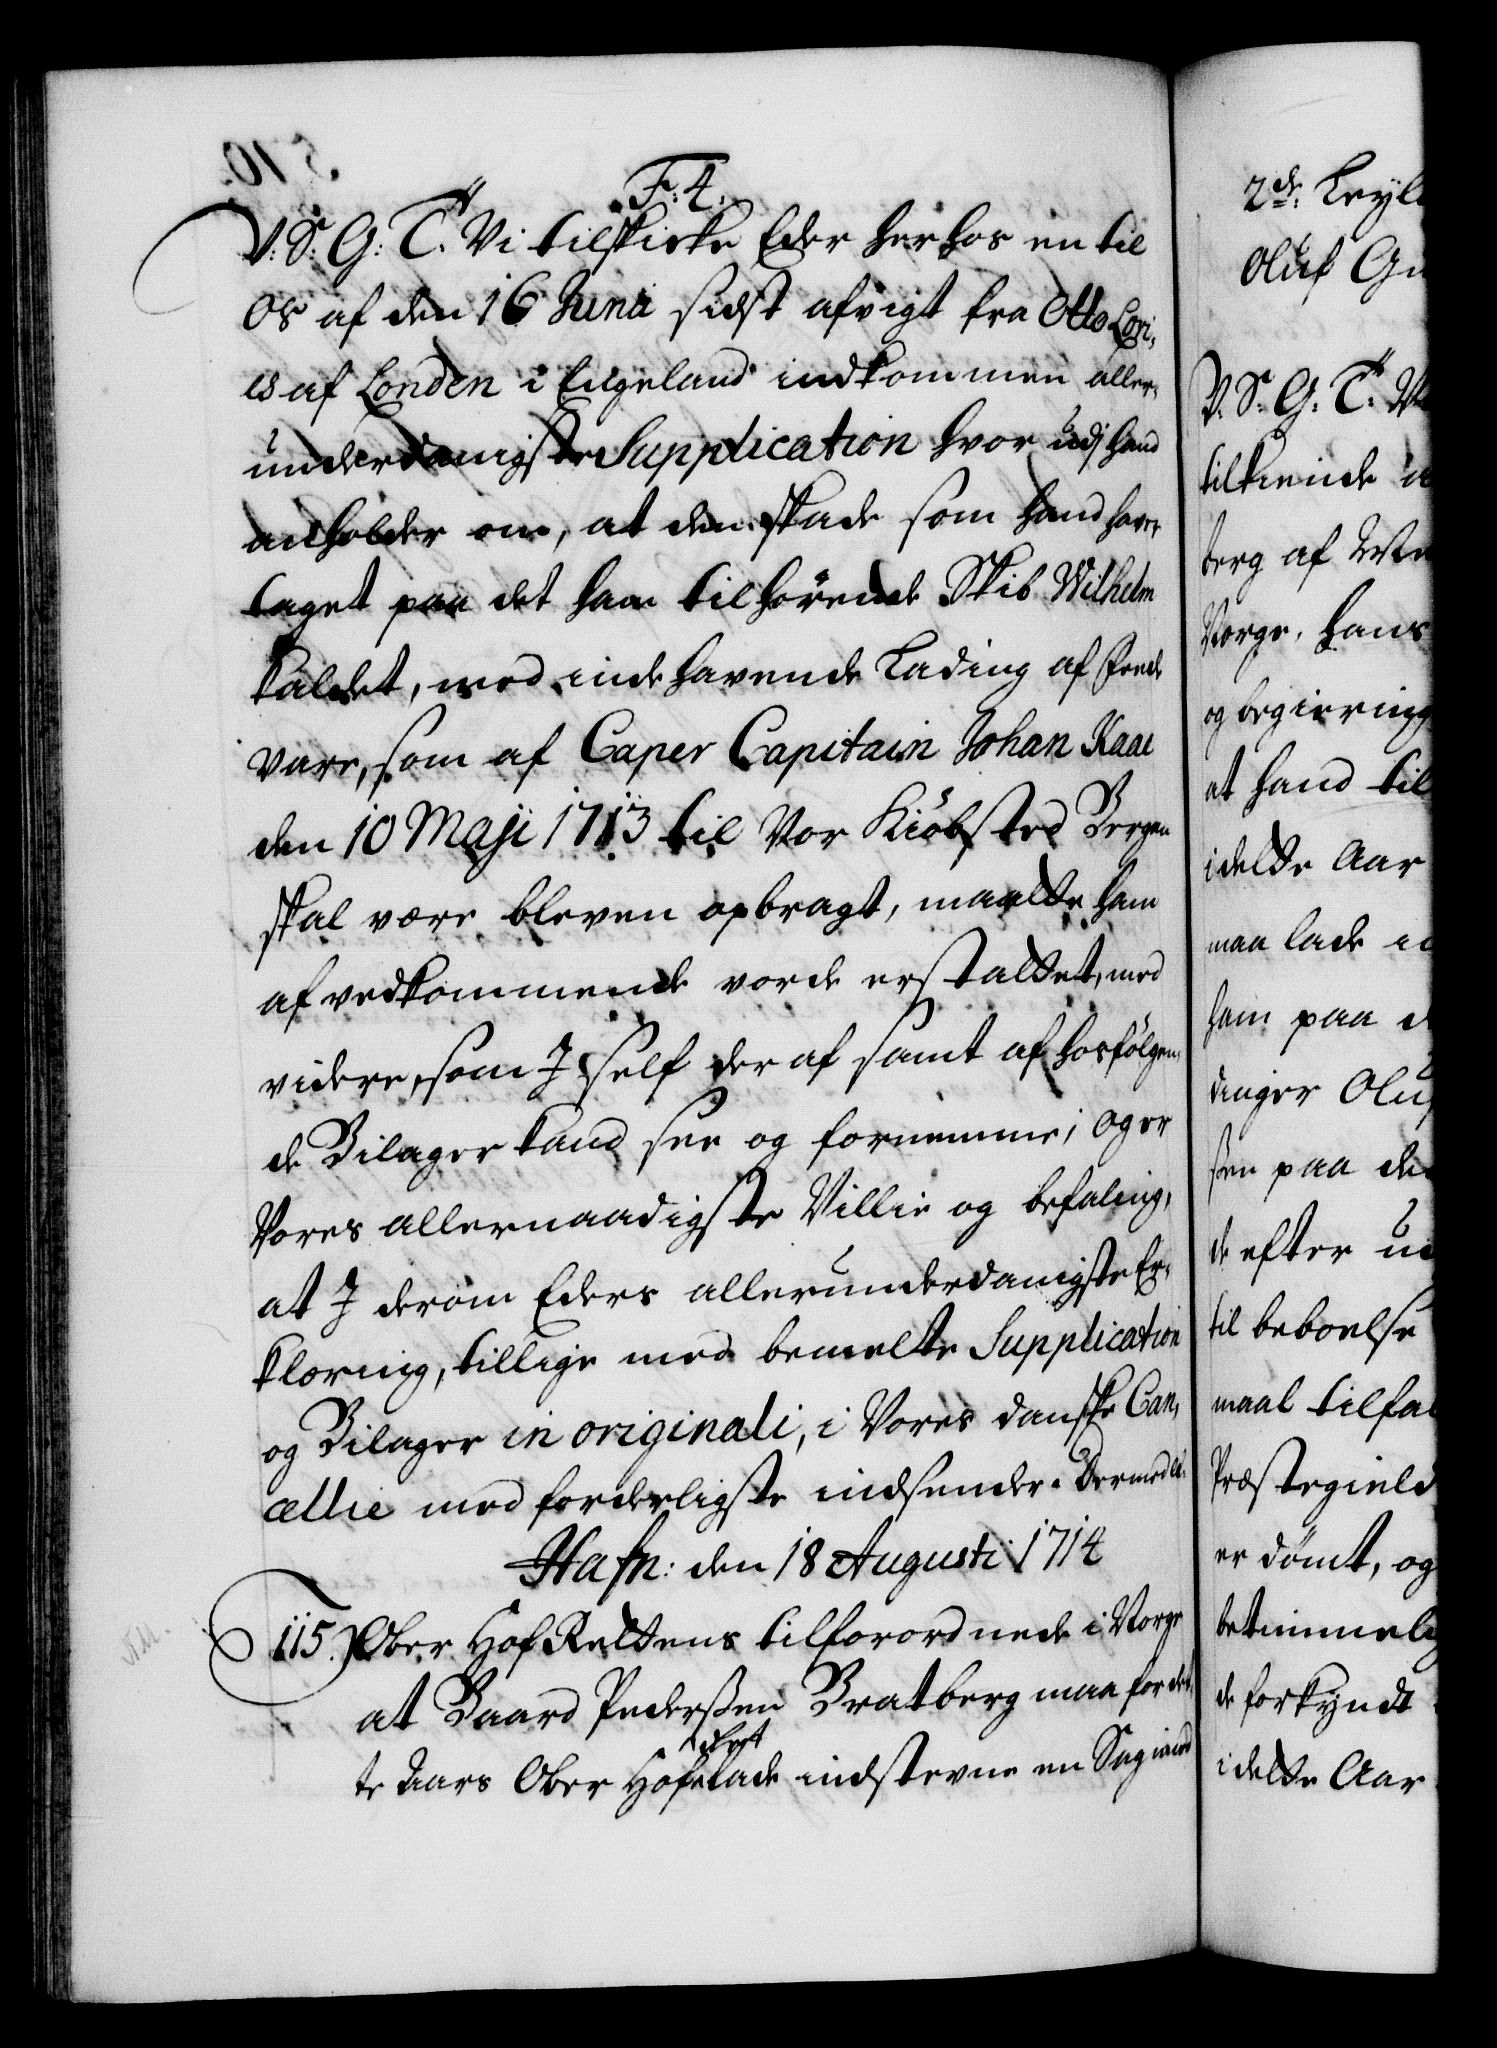 F. 4.
V. S. G. T. Vi tilskicke Eder herhos en til
Os af den 16 Junii sidst afvigt fra Otto Lori,
es af Londen i Engeland indkommen aller,
underdanigste Supplication hvor udj hand
anholder om, at den skade som hand haver
taget paa det ham tilhørende Skib Wilhelm
kaldet, med indehavende Lading af
vare, som af Caper Capitain Johan Kaae
den 10 Maji 1713 til Vor Kiøbsted Bergen
skal være bleven opbragt, maatte ham
af vedkommende vorde erstattet, med
videre, som J self der af samt af hosfølgen,
de Bilager kand see og fornemme; og er
Vores allernaadigste Villie og befaling,
at J derom Eders allerunderdanigste Er,
klæring, tillige med bemelte Supplication
og Bilager in originali, i Vores danske Can,
cellie med forderligste indsender. Dermed
Hafn: den 18 Augusti 1714
115. Ober Hof Rettens tilforordnede i Norge
at Baard Pederßen Bratberg maa for det,
te Aars Ober Hof indstevne en Sag imod
2de Leyl
Oluf Gu
V. S. G. T. V
tilkiende
berg af
Norge, hans
og begiering
at hand til
i dette Aar
maa lade
ham paa
dinger Oluf
ßen paa de
de efter
til beboelse
maal tilfal
Præstegield
er dømt, og
betimmelig
de forkyndt
i dette Aar